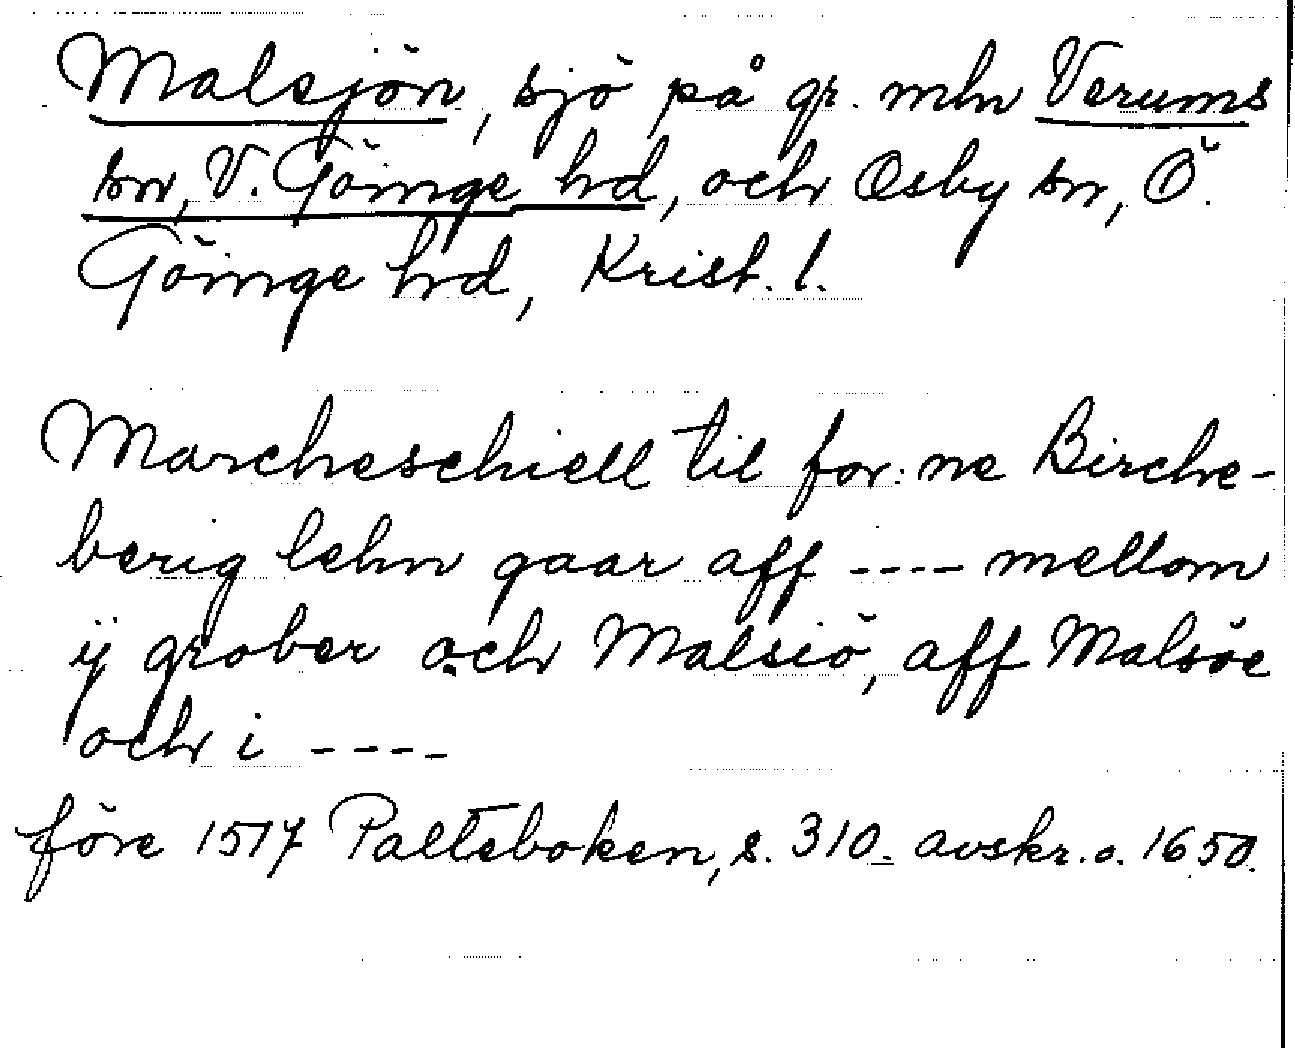 Malsjön, sjö på gr. mln Verums
sn, V. Göinge hd, och Osby sn, Ö.
Göinge hd, Krist. l.
Marcheschiell til for: ne Birche-
berig lehn gaar aff ---- mellom
ÿ grober och Malsiö, aff Malsöe
och i ----
före 1517 Palteboken, s. 310. avskr. o. 1650.